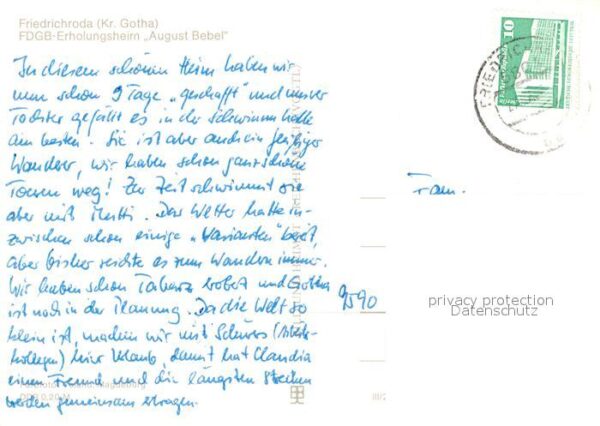 Friedrichroda (Kr. Gotha)
FDGB-Erholungsheim „August Bebel"
In diesem schönen Heim haben wir
nun schon 9 Tage „geschafft" und unser
Tochter gefällt es in der Schwimmhalle
am besten. Sie ist aber auch ein fleißiger
Wanderer, wir haben schon ganz schöne
Touren weg! Zur Zeit schwimmt sie
aber mit Mutti. Das Wetter hatte in-
zwischen schon einige „Varianten" bereit,
aber bisher reichte es zum Wandern immer.
Wir haben schon Tabarz erobert und Gotha
ist noch in der Planung. Da die Welt so
klein ist, machen wir mit
kollegen) hier Urlaub, damit hat Claudia
einen Freund und die längsten Strecken
werden gemeinsam ertragen.
Fam.
9590
10
privacy protection
Datenschutz
Magdeburg
III/